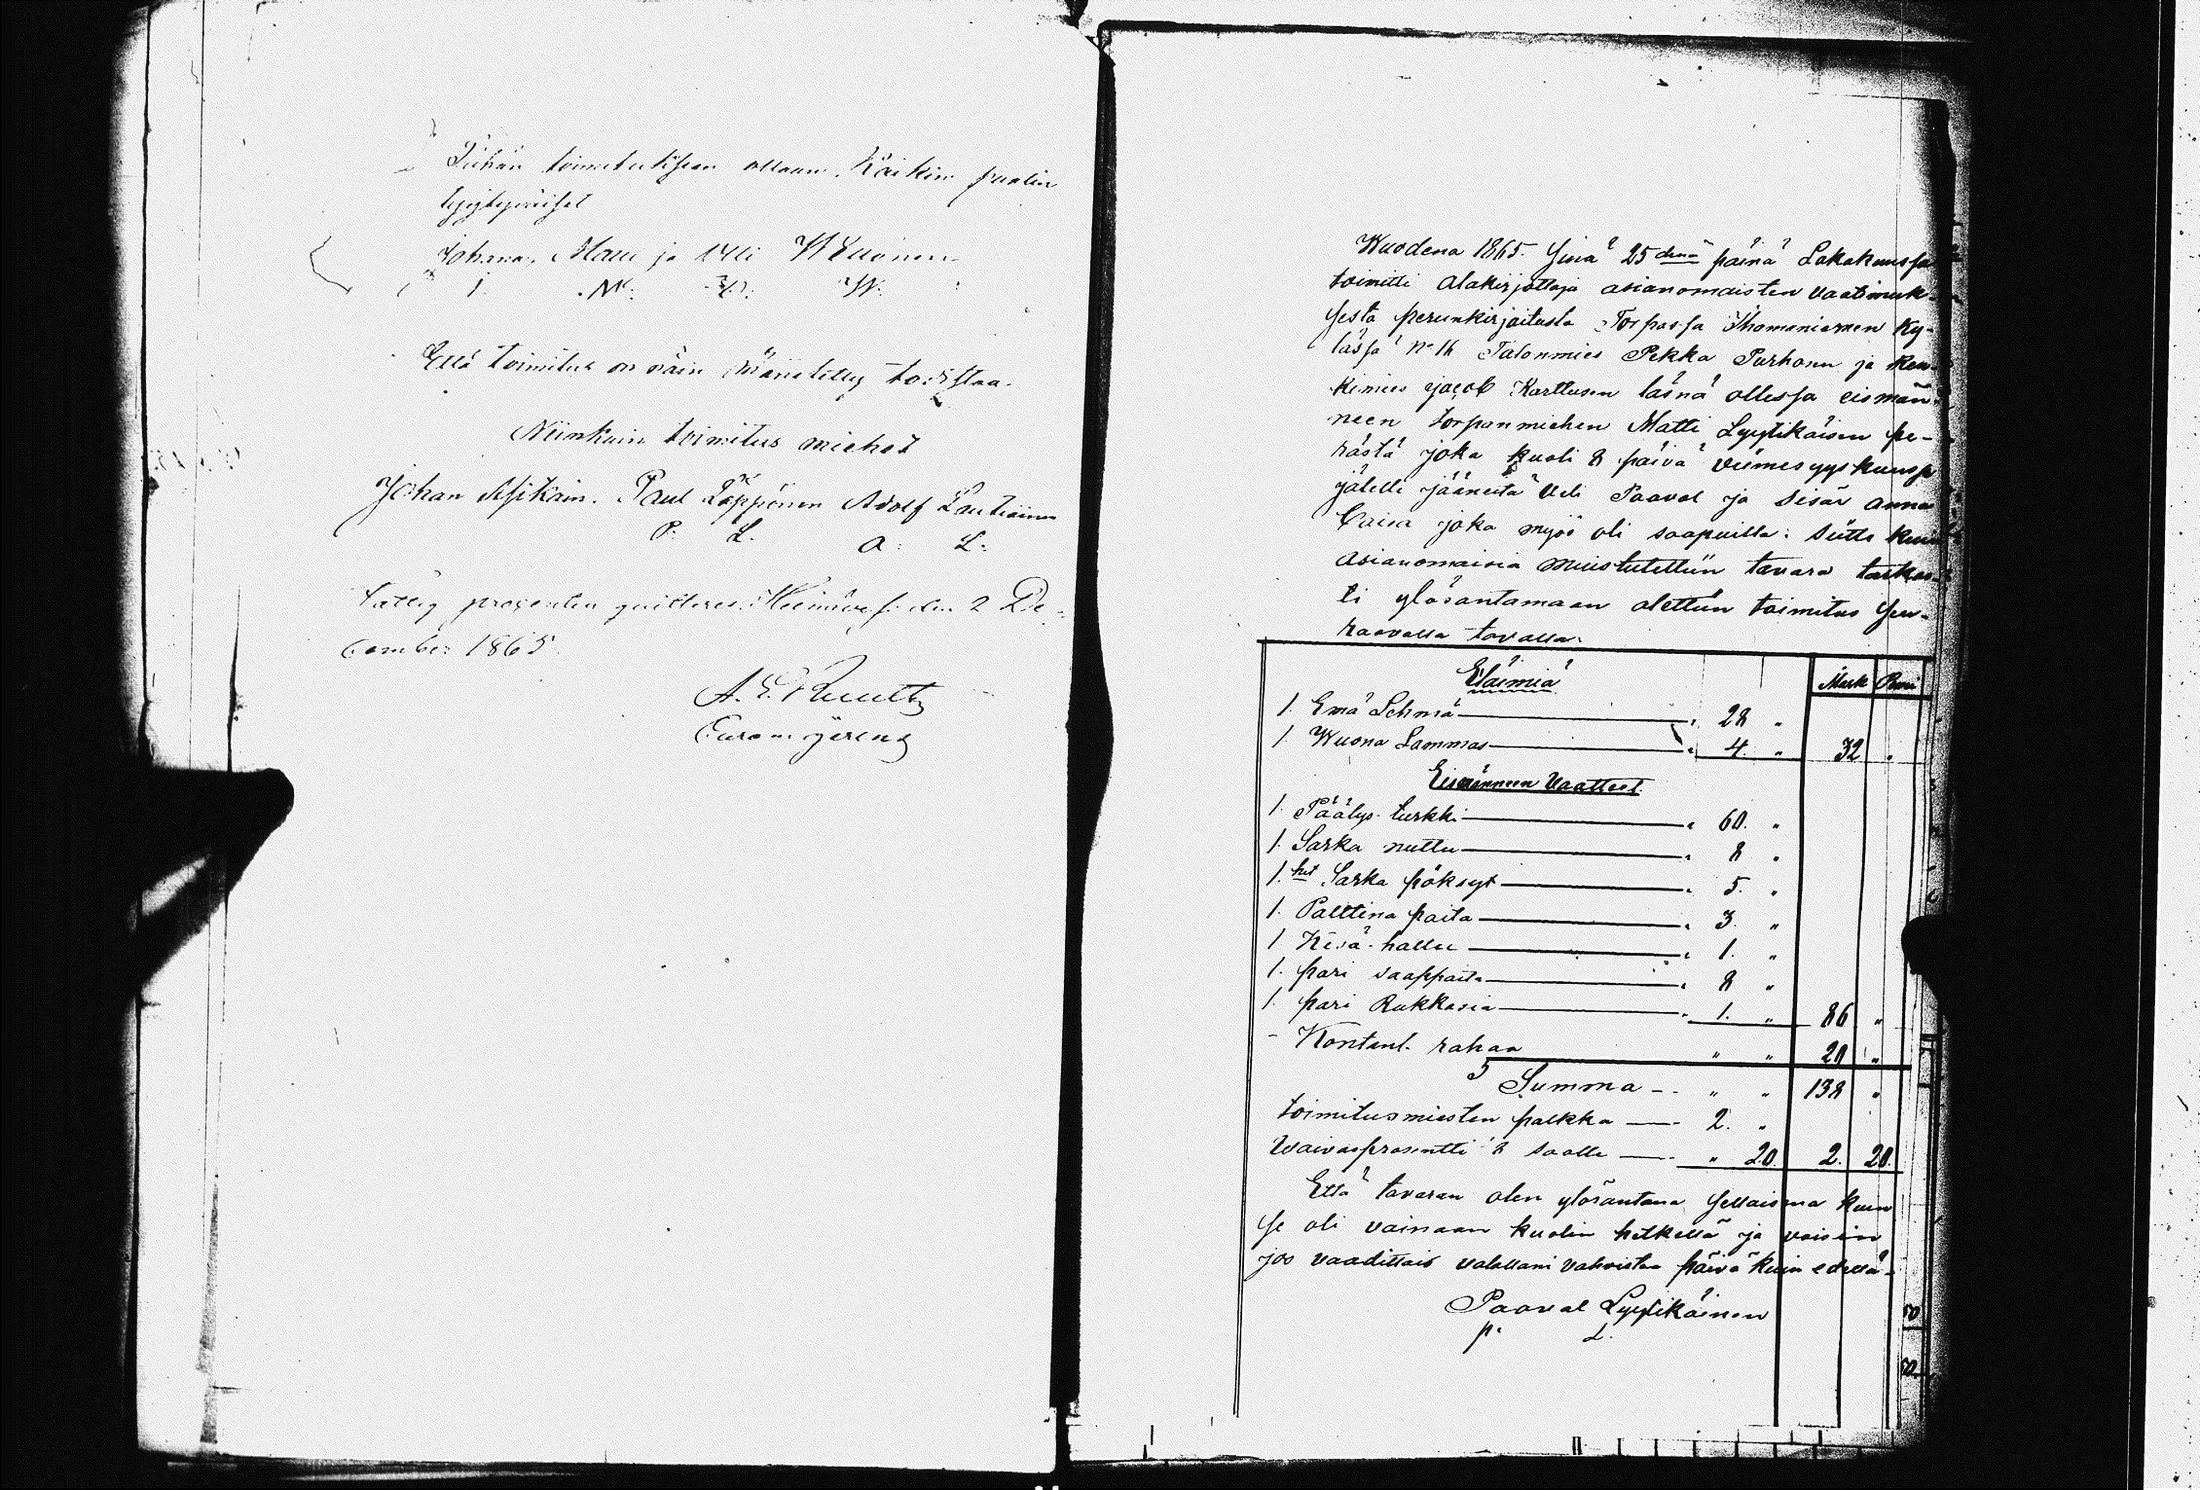 Tähän toimitukseen ollaan Kaikin puolin
tyytyväiset
Johana, Mari ja Ulli Wäänänen
J. M. U. W.
Että toimitus on näin toistaa
Niinkuin toimitus miehet
Johan Asikain. Paul Lappönen Adolf Lautiainen
P. L. A. L.
fattig procenten qvitteres den 2 De-
cember 1865.
Wuodena 1865. Sinä 25 denä päinä Lokakuussa
toimitti Alakirjottaja asianomaisten vaatimuk-
sesta perunkirjoitusta Torpassa Ihamaniemen Ky-
lässä No 16 Talonmies Pekka Parhonen ja Ken-
kimies Jacob Karttusen läsnä ollessa eismän-
neen torpanmiehen Matti Lyytikäisen pe-
rästä joka kuoli 8 päivä viimesyyskuussa
jälelli jääneitä Veli Paaval ja Sisär Anna
Caisa joka myös oli saapuilla: Siitte kuin
asianomaisia muistutettiin tavara tarkas-
ti ylösantamaan alettiin toimitus seu-
raavalla tavalla:
Mark Peni
Eläimiä
1. Emä Lehmä 28 "
1. Wuona Lammas 4. " 32 "
Eismänneen Vaatteet
1. Päälys turkki 60. "
1. Sarka nuttu 8 "
1. ht Sarka pöksyt 5. "
1. Palttina paita 3. "
1 Kesä hattu 1. "
1. pari saappaita 8 "
1. pari Rukkasia 1. " 86 "
- Kontant. rahaa " " 20 "
Summa " " 138 "
toimitusmiesten palkka 2. "
Waivasprosentti 8 saalle " 20. 2. 20.
Että tavaran olen ylösantana sellaisena kuin
se oli vainaan kuolin hetkellä ja voisin
jos vaadittais valallani vahvistaa päivä kuin edellä.
Paaval Lyytikäinen
P. L.